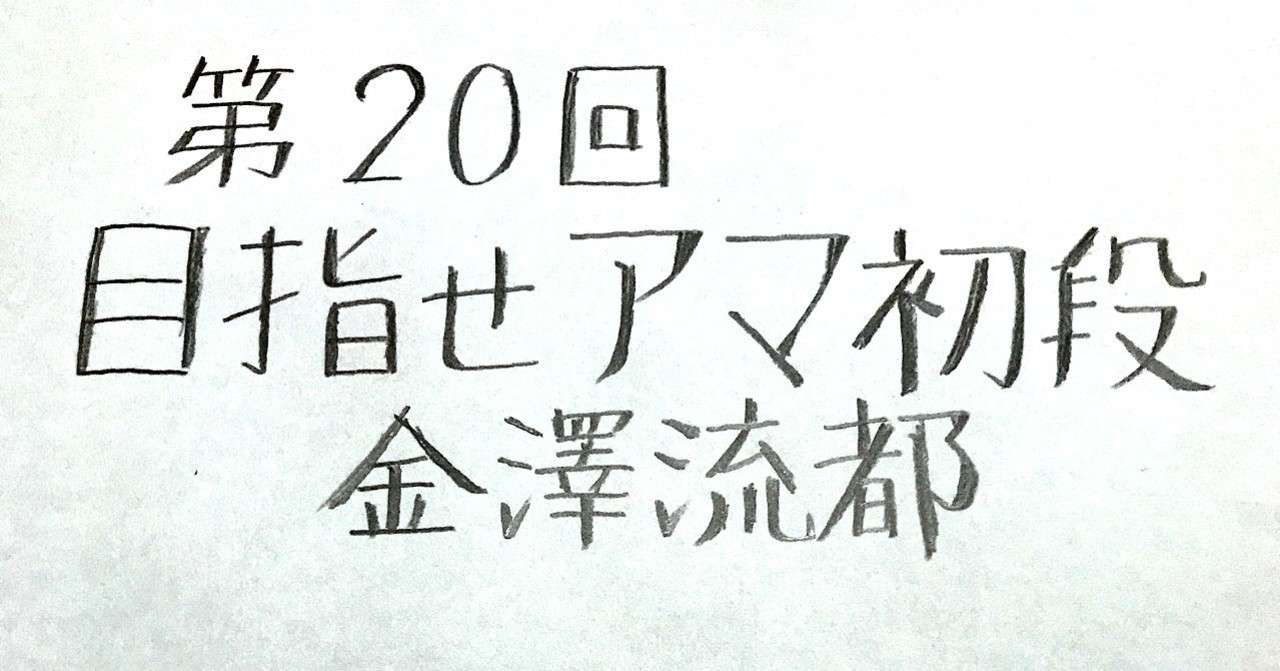 第20回
目指せアマ初段
金澤流都